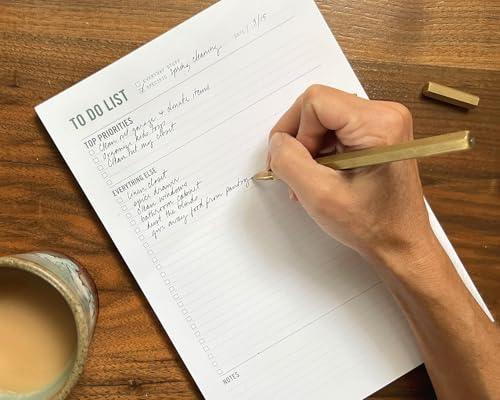 TO DO LIST
EVERYDAY STUFF
SPECIAL Spring cleaning
DATE 3/15
TOP PRIORITIES
Clean out garage & donate items
Organize kids toys
Clean out my closet
EVERYTHING ELSE
linen closet
spice drawer
clean windows
bathroom cabinet
dust the blinds
give away food from pantry
NOTES